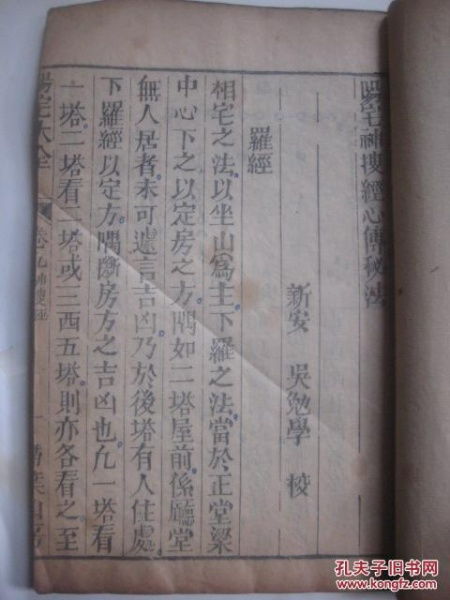 陽宅神搜經心傳秘法
新安 吳勉學 校
羅經
相宅之法以坐山為主下羅之法當於正堂梁
中心下之以定房之方隅如二塔屋前係廳堂
無人居者未可遽言吉凶乃於後塔有人住處
下羅經以定方隅斷房方之吉凶也凢一塔看
一塔二塔看二塔或三四五塔則亦各看之至
陽宅大全
卷九神搜經
一
孔夫子旧书网
www.kongfz.com